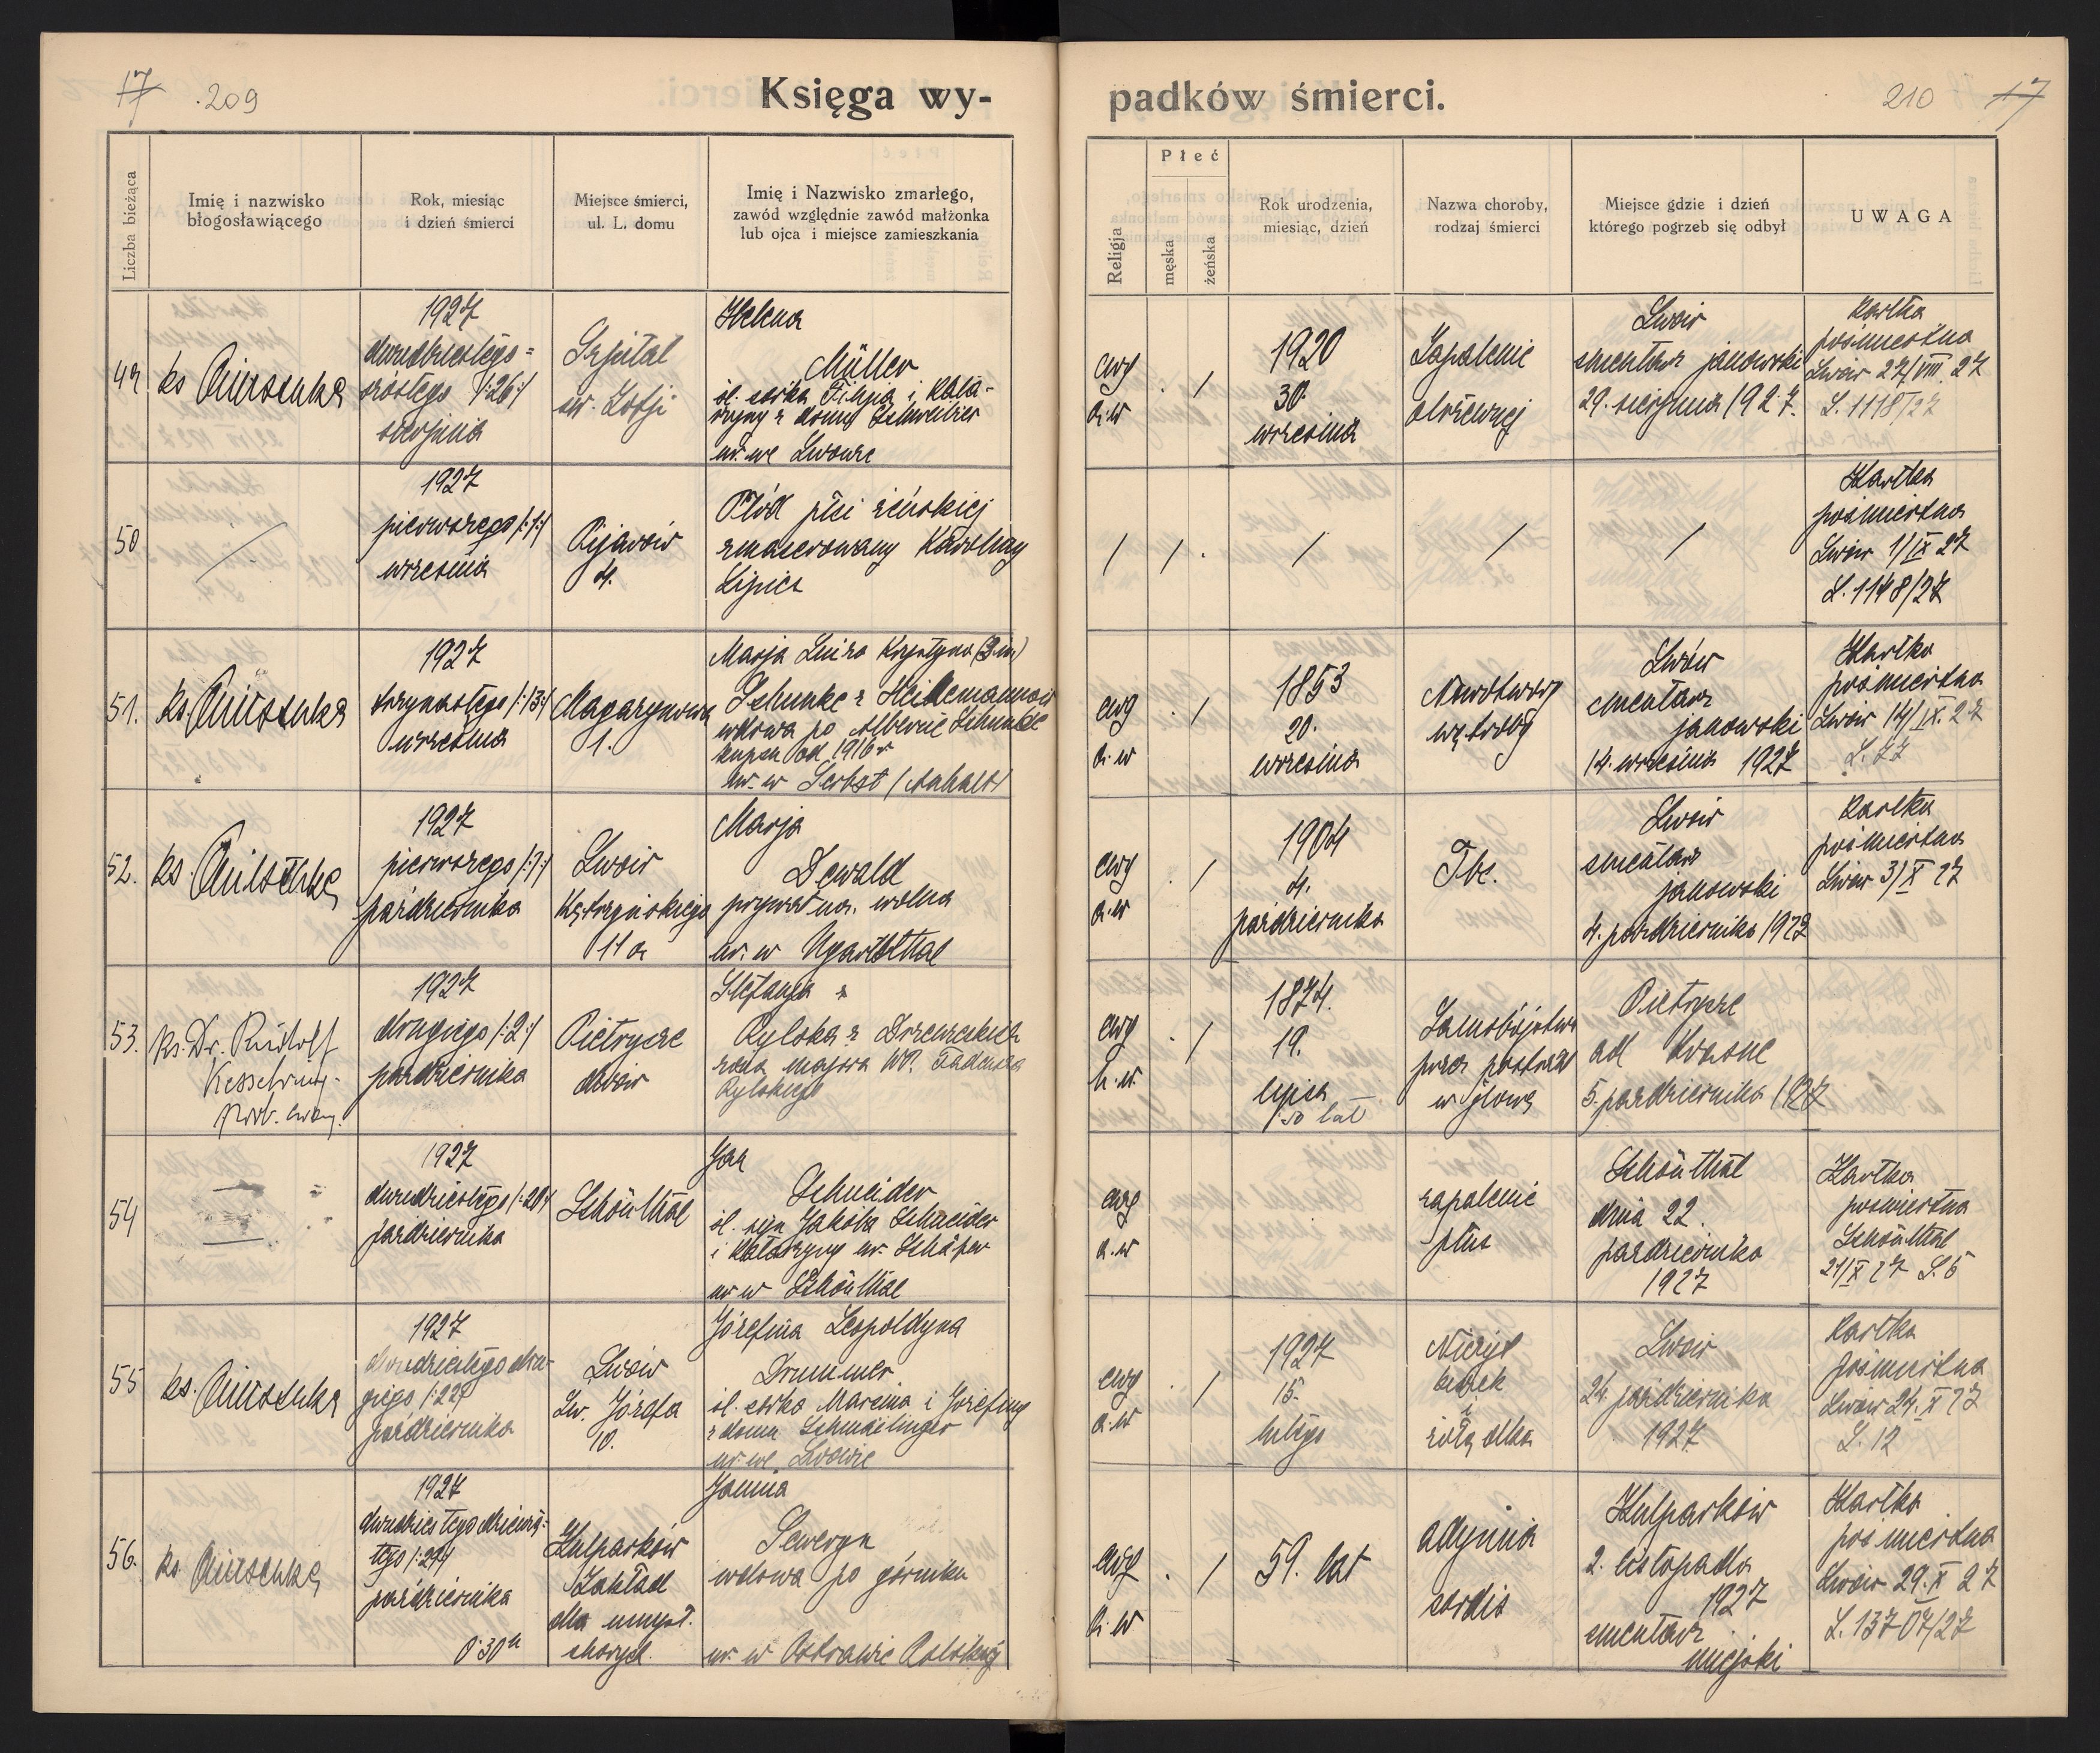 17 209
Księga wy-
padków śmierci.
210 17
Liczba bieżąca
Imię i nazwisko
błogosławiącego
Rok, miesiąc
i dzień śmierci
Miejsce śmierci,
ul. L. domu
Imię i Nazwisko zmarłego,
zawód względnie zawód małżonka
lub ojca i miejsce zamieszkania
Religja
Płeć
męska
żeńska
Rok urodzenia,
miesiąc, dzień
Nazwa choroby,
rodzaj śmierci
Miejsce gdzie i dzień
którego pogrzeb się odbył
UWAGA
49
ks
1927
dwudziestego =
szóstego /:26:/
sierpnia
Szpital
św. Zofji
Helena
Müller
śl. córka Filipa i Kata-
rzyny z domu
ur. we Lwowie
ewg
a.w
1920
30.
września
Zapalenie
otrzewnej
Lwów
cmentarz janowski
29. sierpnia 1927.
Kartka
pośmiertna
Lwów 27/VIII. 27
L. 1118/27
50
1927
pierwszego /:1:/
września
Pijarów
4.
Płód płci żeńskiej
zmacerowany Karoliny
Lipicz
Kartka
pośmiertna
Lwów 1/IX 27
L. 1148/27
51.
ks.
1927
trzynastego /:13:/
września
1.
Marja Luiza Krystyna (3 im)
Schunke z
wdowa po Albercie Schunke
kupcu od 1916 r
ur. w Zerbst (Anhalt)
ewg
a.w
1853
20.
września
Nowotwory
wątroby
Lwów
cmentarz
janowski
14. września 1927
Kartka
pośmiertna
Lwów 14/IX. 27
L. 77
52.
ks.
1927
pierwszego /:1:/
października
Lwów
Kętrzyńskiego
11 a
Marja
Dewald
prywatna. wolna
ur. w Ugartsthal
ewg
a.w
1904
4.
października
Tbc.
Lwów
cmentarz
janowski
4. października 1927
Kartka
pośmiertna
Lwów 3/X 27
53.
ks. Dr. Rudolf
Kesselring
1927
drugiego /:2:/
października
Pietrycze
dwór
Stefanja
Rylska z
żona majora WP. Tadeusza
Rylskiego
ewg
1874.
19.
lipca
50 lat
Samobójstwo
przez postrzał
w głowę
Pietrycze
ad Krasne
5. października 1927
54
1927
dwudziestego /:20:/
października
Schönthal
Jan
Schneider
śl. syn Jakóba Schneider
i Katarzyny ur. Schäfer
ur w Schönthal
ewg
a.w
zapalenie
płuc
Schönthal
dnia 22.
października
1927
Kartka
pośmiertna
Schönthal
21/X 27 L. 5
55
ks.
1927
dwudziestego dru-
giego /:22:/
października
Lwów
Św. Józefa
10.
Józefina Leopoldyna
Drummer
śl. córka Marcina i Józefiny
z domu
ur. we Lwowie
ewg
a.w
1927
15.
lutego
Nieżyt
kiszek
i
żołądka
Lwów
24. października
1927
Kartka
pośmiertna
Lwów 24. X 27
L. 12
56.
ks
1927
dwudziestego dziewią-
tego /:29:/
października
0·30 h
Kulparków
Zakład
dla umysł.
chorych.
Janina
Seweryn
wdowa po górniku
ur. w Ostrawie Polskiej
ewg
a.w
59. lat
adynia
cordis
Kulparków
2. listopada
1927
cmentarz
miejski
Kartka
pośmiertna
Lwów 29. X 27
L. 13707/27